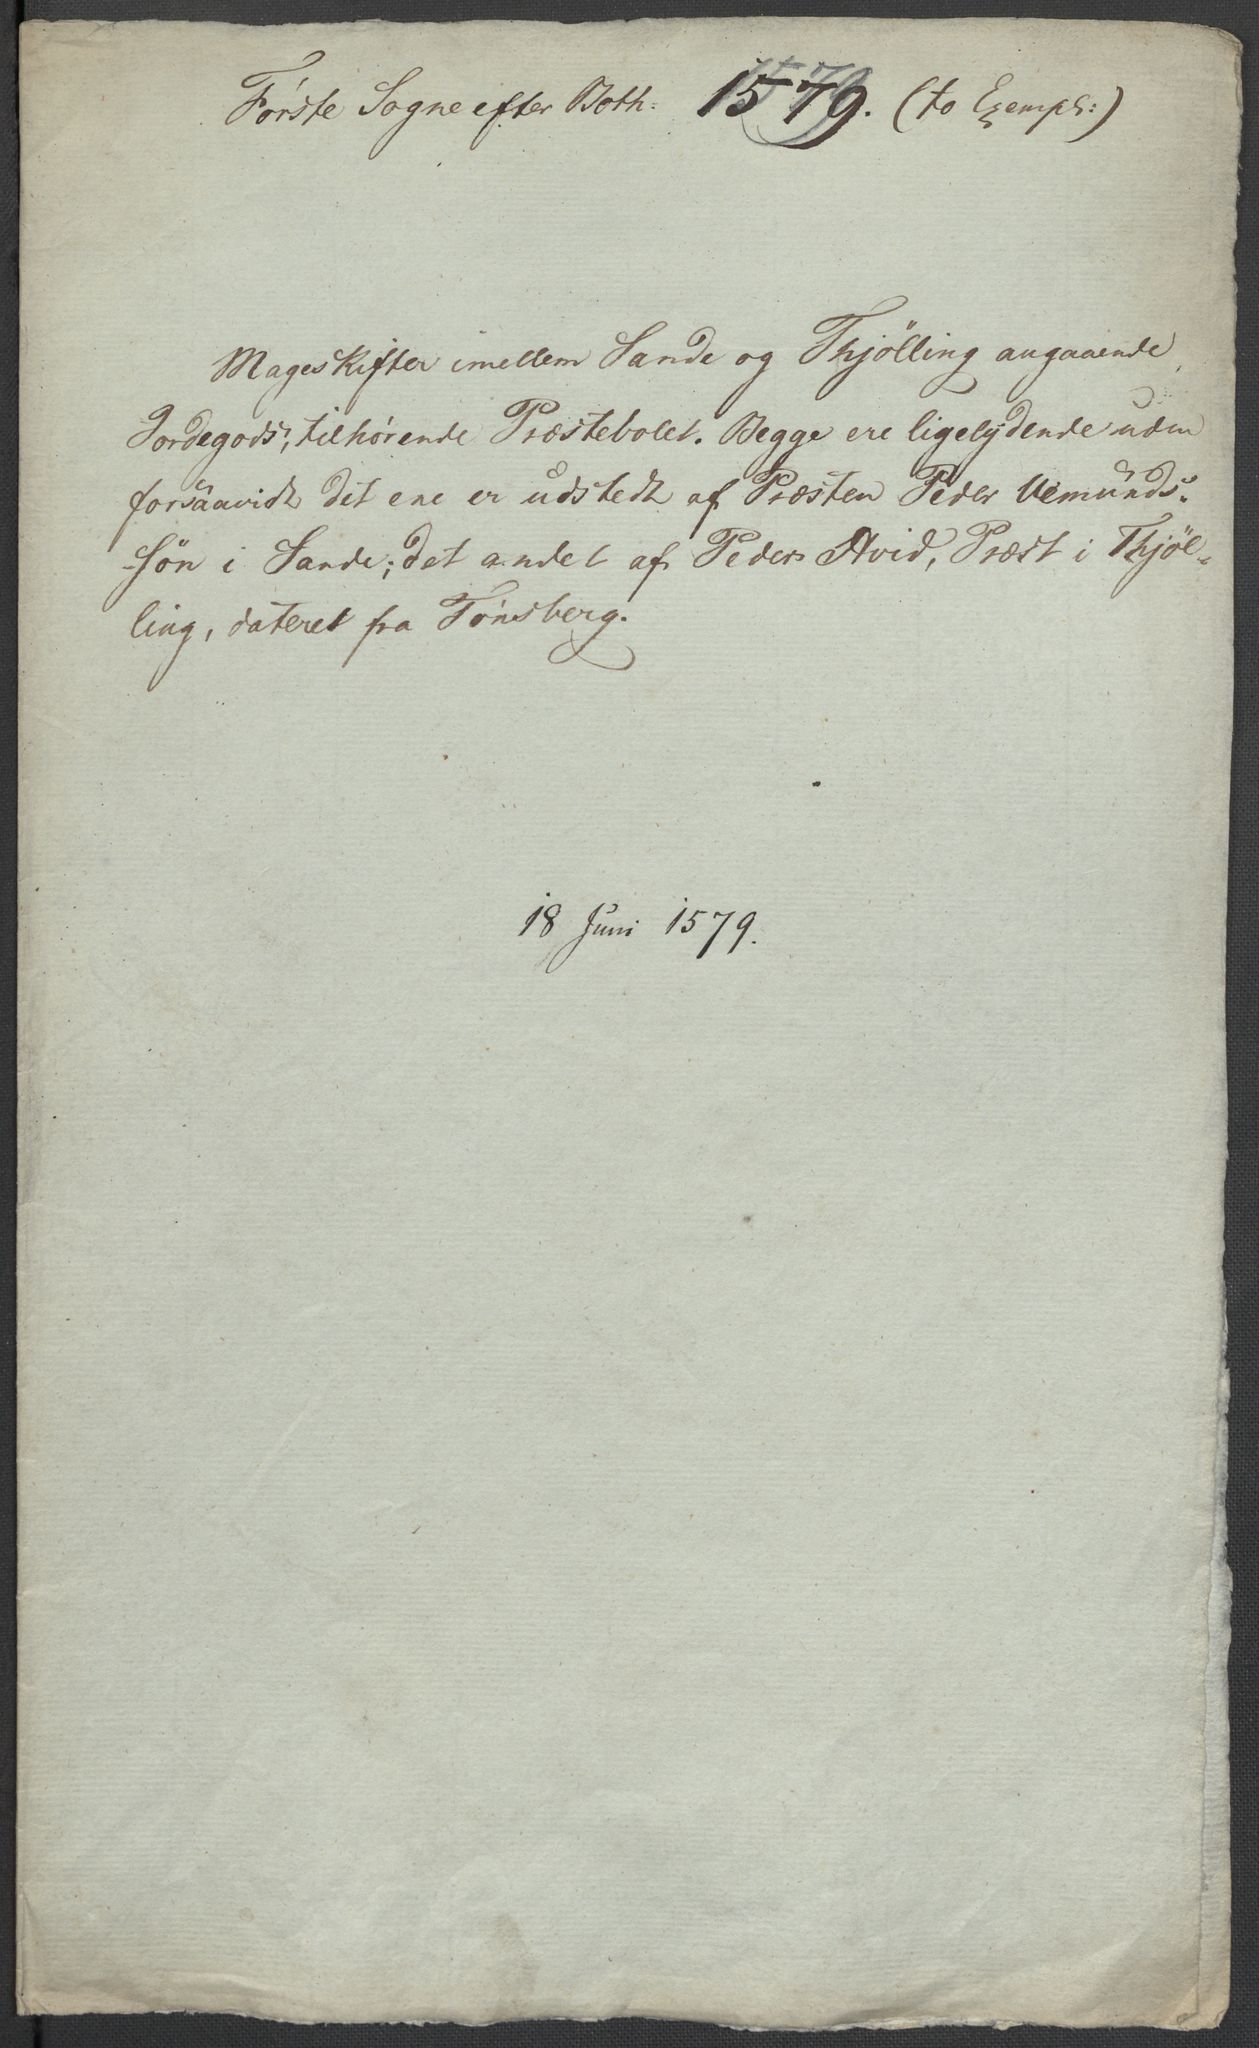 Første Sogne efter Both: 1579. (to Exempl:)
Mageskifter imellem Sande og Thjölling angaaende
Jordegods, tilhørende Præstebolet. Begge ere ligelydende uden
forsaavidt det ene er udstedt af Præsten Peder Vemunds-
søn i Sande; det andet af Peder Avid, Præst i Thjöl-
ling, dateret fra Tønsberg.
18 Juni 1579.